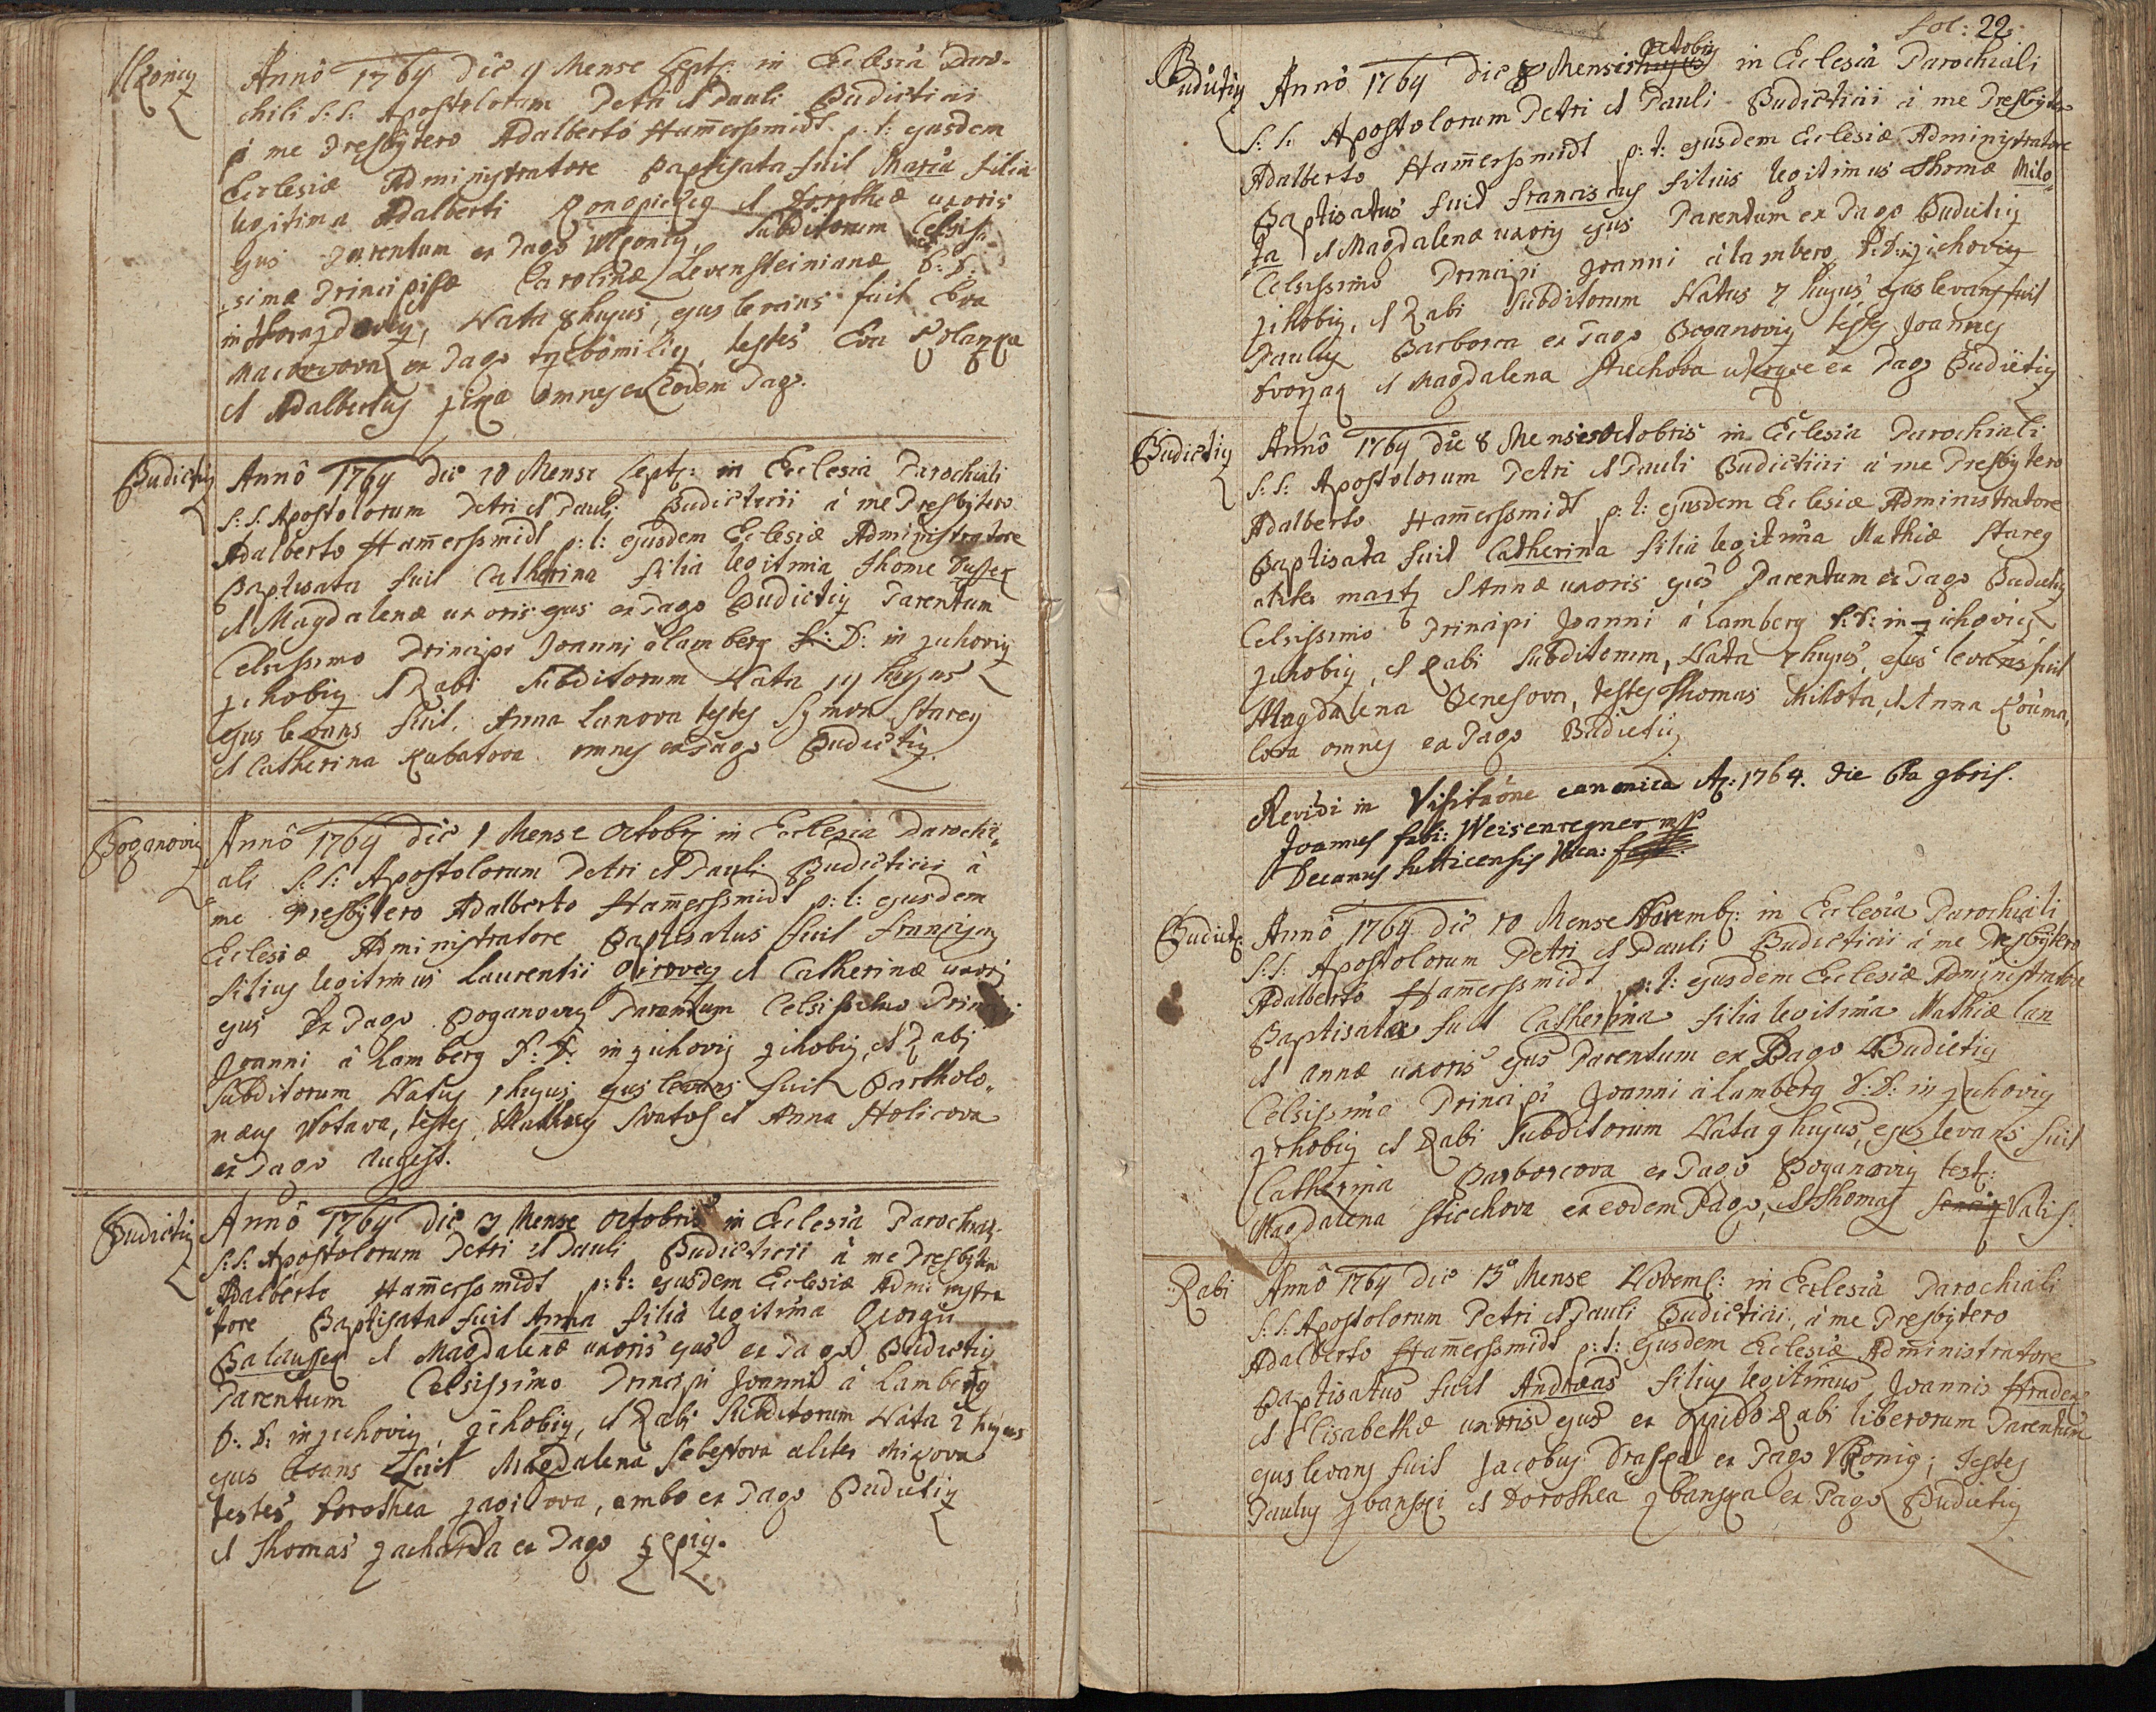 Annô 1764 die 9 Mense Septr: in Ecclesia Paro-
chili S: S: Apostolorum Petri et Pauli Budicticii
à me Presbytero Adalberto Ham̄erssmidt p: t: ejusdem
Ecclesiæ Administratore Baptisata fuit Maria filia
legitima Adalberti Konopicky et Dorotheæ uxoris
ejus Parentum ex Pago Subditorum Celsis-
simæ Principissæ Carolinæ Levensteinianæ D: D:
in Nata 8 hujus, ejus levans fuit Eva
ex Pago testes Eva
et Adalbertus omnes ex eodem Pago.
Budictiz
Annô 1764 die 10 Mense Septr: in Ecclesia Parochiali
S: S: Apostolorum Petri et Pauli Budicticii à me Presbytero
Adalberto Ham̄erssmidt p: t: ejusdem Ecclesiæ Administratore
Baptisata fuit Catherina filia legitima Thome
et Magdalenæ uxoris ejus ex Pago Budictiz Parentum
Celsissimo Principi Joanni à Lamberg D: D: in zichoviz
zihobiz et Rabi Subditorum Nata hujus
ejus levans fuit Anna Lanova testes Symon Starey
et Catherina Kubatova omnes ex Pago Budictiz.
Boganoviz
Annô 1764 die 1 Mense Octobr: in Ecclesia Parochi-
ali S: S: Apostolorum Petri et Pauli Budicticii à
me Presbytero Adalberto Ham̄erssmidt p: t: ejusdem
Ecclesiæ Administratore Baptisatus fuit
filius legitimus Laurentii et Catherinæ uxoris
ejus Ex Pago Boganoviz Parentum Celsissimo Principi
Joanni à Lamberg D: D: in zichoviz zihobiz, et Rabi
Subditorum Natus 1 hujus ejus levans fuit Bartholo-
mæus Wotava, testes et Anna Holicova
ex Pago
Budictiz
Annô 1764 die 3 Mense Octobris in Ecclesia Parochiali
S: S: Apostolorum Petri et Pauli Budicticii à me Presbytero
Adalberto Ham̄erssmidt p: t: ejusdem Ecclesiæ Administra
tore Baptisata fuit Anna filia legitima Georgii
et Magdalenæ uxoris ejus ex Pago Budictiz
Parentum Celsissimo Principi Joanni à Lamberg
D: D: in zichoviz, zihobiz, et Rabi Subditorum Nata 2 hujus
ejus levans fuit Magdalena Sebestova aliter Mikova
testes Dorothea ambo ex Pago Budictiz
et Thomas ex Pago
fol: 22.
Budictiz
Annô 1764 die 8 Mensis Octobris in Ecclesia Parochiali
S: S: Apostolorum Petri et Pauli Budicticii à me Presbytero
Adalberto Ham̄erssmidt p: t: ejusdem Ecclesiæ Administratore
Baptisatus fuit Franciscus filius legitimus Thomæ Milo-
ta et Magdalenæ uxoris ejus Parentum ex Pago Budictiz
Celsissimo Principi Joanni à Lamberg D: D: in zichoviz
zihobiz, et Rabi Subditorum Natus 7 hujus, ejus levans fuit
Paulus Barborca ex Pago Boganoviz testes Joannes
Dvorzaq et Magdalena Stiechova uterque ex Pago Budietiz
Budictiz
Annô 1764 die 8 Mensis Octobris in Ecclesia Parochiali
S: S: Apostolorum Petri et Pauli Budicticii à me Presbytero
Adalberto Ham̄erssmidt p: t: ejusdem Ecclesiæ Administratore
Baptisata fuit Catherina filia legitima Mathiæ Starey
aliter et Annæ uxoris ejus Parentum ex Pago Budietiz
Celsissimo Principi Joanni à Lamberg D: D: in zichoviz
zihobiz, et Rabi Subditorum, Nata 7 hujus, ejus levans fuit
Magdalena Benesova, testes Thomas Milota, et Anna
omnes ex Pago Budietiz
Revidi in Visitaõne canonica Aō: 1764. die 6ta 9bris.
Joannes Weisenregner mp
Decanus Sutticensis
Annô 1764 die 10 Mense Novembr: in Ecclesia Parochiali
S: S: Apostolorum Petri et Pauli Budicticii à me Presbytero
Adalberto Ham̄erssmidt p: t: ejusdem Ecclesiæ Administratore
Baptisata fuit Catherina filia legitima Mathiæ Lan
et Annæ uxoris ejus Parentum ex Pago Budietiz
Celsissimo Principi Joanni à Lamberg D: D: in zichoviz
zihobiz et Rabi Subditorum Nata 9 hujus, ejus levans fuit
Catherina Barborcova ex Pago Boganoviz test:
Magdalena Stiechova ex eodem Pago, et Thomas Valis.
Rabi
Annô 1764 die 13 Mense Novemb: in Ecclesia Parochiali
S: S: Apostolorum Petri et Pauli Budicticii, à me Presbytero
Adalberto Ham̄erssmidt p: t: ejusdem Ecclesiæ Administratore
Baptisatus fuit Andræas filius legitimus Joannis
et Elisabethæ uxoris ejus ex oppido Rabi liberorum Parentum
ejus levans fuit Jacobus ex Pago testes
Paulus et Dorothea ex Pago Budietiz